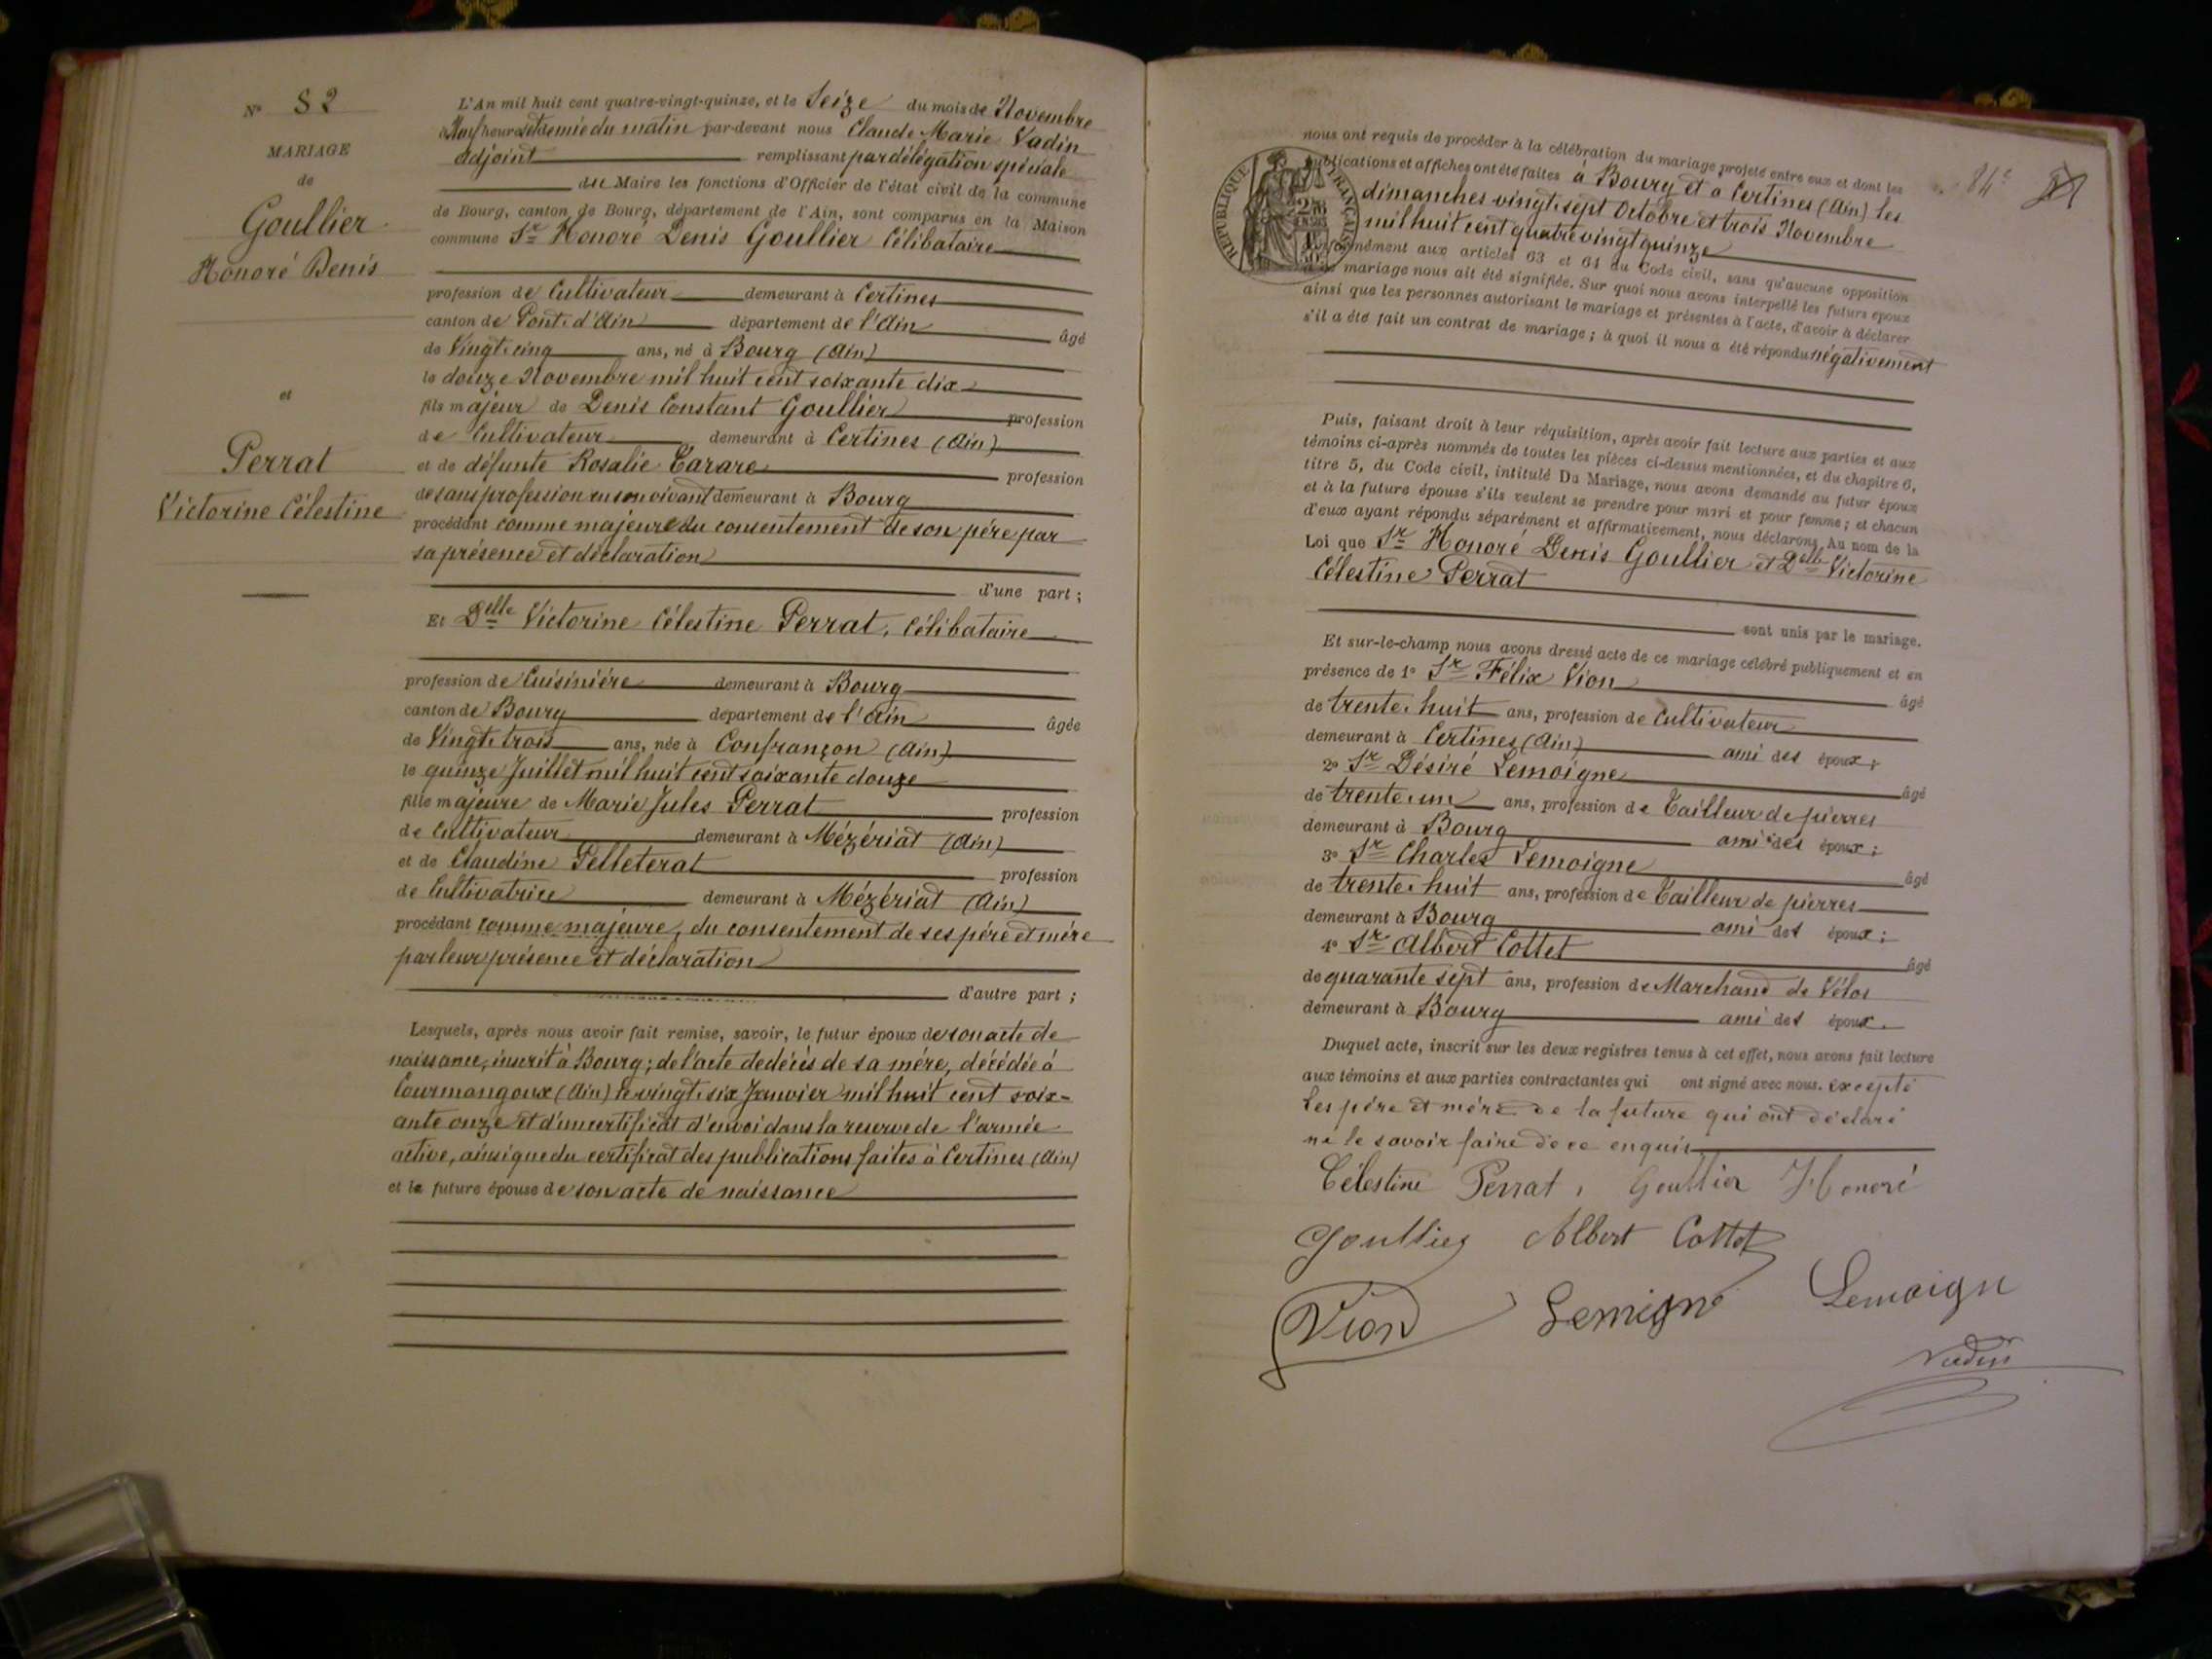 N° 82
MARIAGE
de
Goullier
Honoré Denis
et
Perrat
Victorine Célestine
L'An mil huit cent quatre-vingt-quinze, et le Seize du mois de Novembre
à Neuf heures et demie du matin par-devant nous Claude Marie Vadin
adjoint remplissant par délégation spéciale
du Maire les fonctions d'Officier de l'état civil de la commune
de Bourg, canton de Bourg, département de l'Ain, sont comparus en la Maison
commune Sr Honoré Denis Goullier Célibataire
profession de Cultivateur demeurant à Certines
canton de Pont d'Ain département de l'Ain âgé
de Vingt-cinq ans, né à Bourg (Ain)
le douze Novembre mil huit cent soixante dix
fils majeur de Denis Constant Goullier profession
de Cultivateur demeurant à Certines (Ain)
et de défunte Rosalie Tarare profession
de sans profession en son vivant demeurant à Bourg
procédant comme majeur du consentement de son père par
sa présence et déclaration
d'une part ;
Et Delle Victorine Célestine Perrat, Célibataire
profession de Cuisinière demeurant à Bourg
canton de Bourg département de l'Ain âgée
de Vingt-trois ans, née à Confrançon (Ain)
le quinze Juillet mil huit cent soixante douze
fille majeure de Marie Jules Perrat profession
de Cultivateur demeurant à Mézériat (Ain)
et de Claudine Pelleterat profession
de Cultivatrice demeurant à Mézériat (Ain)
procédant comme majeure, du consentement de ses père et mère
par leur présence et déclaration
d'autre part ;
Lesquels, après nous avoir fait remise, savoir, le futur époux de son acte de
naissance, inscrit à Bourg ; de l'acte de décès de sa mère, décédée à
Courmangoux (Ain) le vingt-six Janvier mil huit cent soix-
ante onze et d'un certificat d'envoi dans la reserve de l'armée
active, ainsi que du certificat des publications faites à Certines (Ain)
et la future épouse de son acte de naissance
84e
nous ont requis de procéder à la célébration du mariage projeté entre eux et dont les
publications et affiches ont été faites à Bourg et à Certines (Ain) les
dimanches vingt-sept Octobre et trois Novembre
mil huit cent quatre vingt quinze
conformément aux articles 63 et 64 du Code civil, sans qu'aucune opposition
à ce mariage nous ait été signifiée. Sur quoi nous avons interpellé les futurs époux
ainsi que les personnes autorisant le mariage et présentes à l'acte, d'avoir à déclarer
s'il a été fait un contrat de mariage ; à quoi il nous a été répondu négativement
RÉPUBLIQUE FRANÇAISE
Puis, faisant droit à leur réquisition, après avoir fait lecture aux parties et aux
témoins ci-après nommés de toutes les pièces ci-dessus mentionnées, et du chapitre 6,
titre 5, du Code civil, intitulé Du Mariage, nous avons demandé au futur époux
et à la future épouse s'ils veulent se prendre pour mari et pour femme ; et chacun
d'eux ayant répondu séparément et affirmativement, nous déclarons Au nom de la
Loi que Sr Honoré Denis Goullier et Delle Victorine
Célestine Perrat
sont unis par le mariage.
Et sur-le-champ nous avons dressé acte de ce mariage célébré publiquement et en
présence de 1° Sr Félix Vion âgé
de trente-huit ans, profession de Cultivateur
demeurant à Certines (Ain) ami des époux ;
2° Sr Désiré Lemoigne âgé
de trente-un ans, profession de Tailleur de pierres
demeurant à Bourg ami des époux ;
3° Sr Charles Lemoigne âgé
de trente-huit ans, profession de Tailleur de pierres
demeurant à Bourg ami des époux ;
4° Sr Albert Cottet âgé
de quarante sept ans, profession de Marchand de Vélos
demeurant à Bourg ami des époux.
Duquel acte, inscrit sur les deux registres tenus à cet effet, nous avons fait lecture
aux témoins et aux parties contractantes qui ont signé avec nous. excepté
les père et mère de la future qui ont déclaré
ne le savoir faire de ce enquis
Célestine Perrat, Goullier Honoré
Goullier Albert Cottet
Vion Lemoigne Lemoign
Vadin